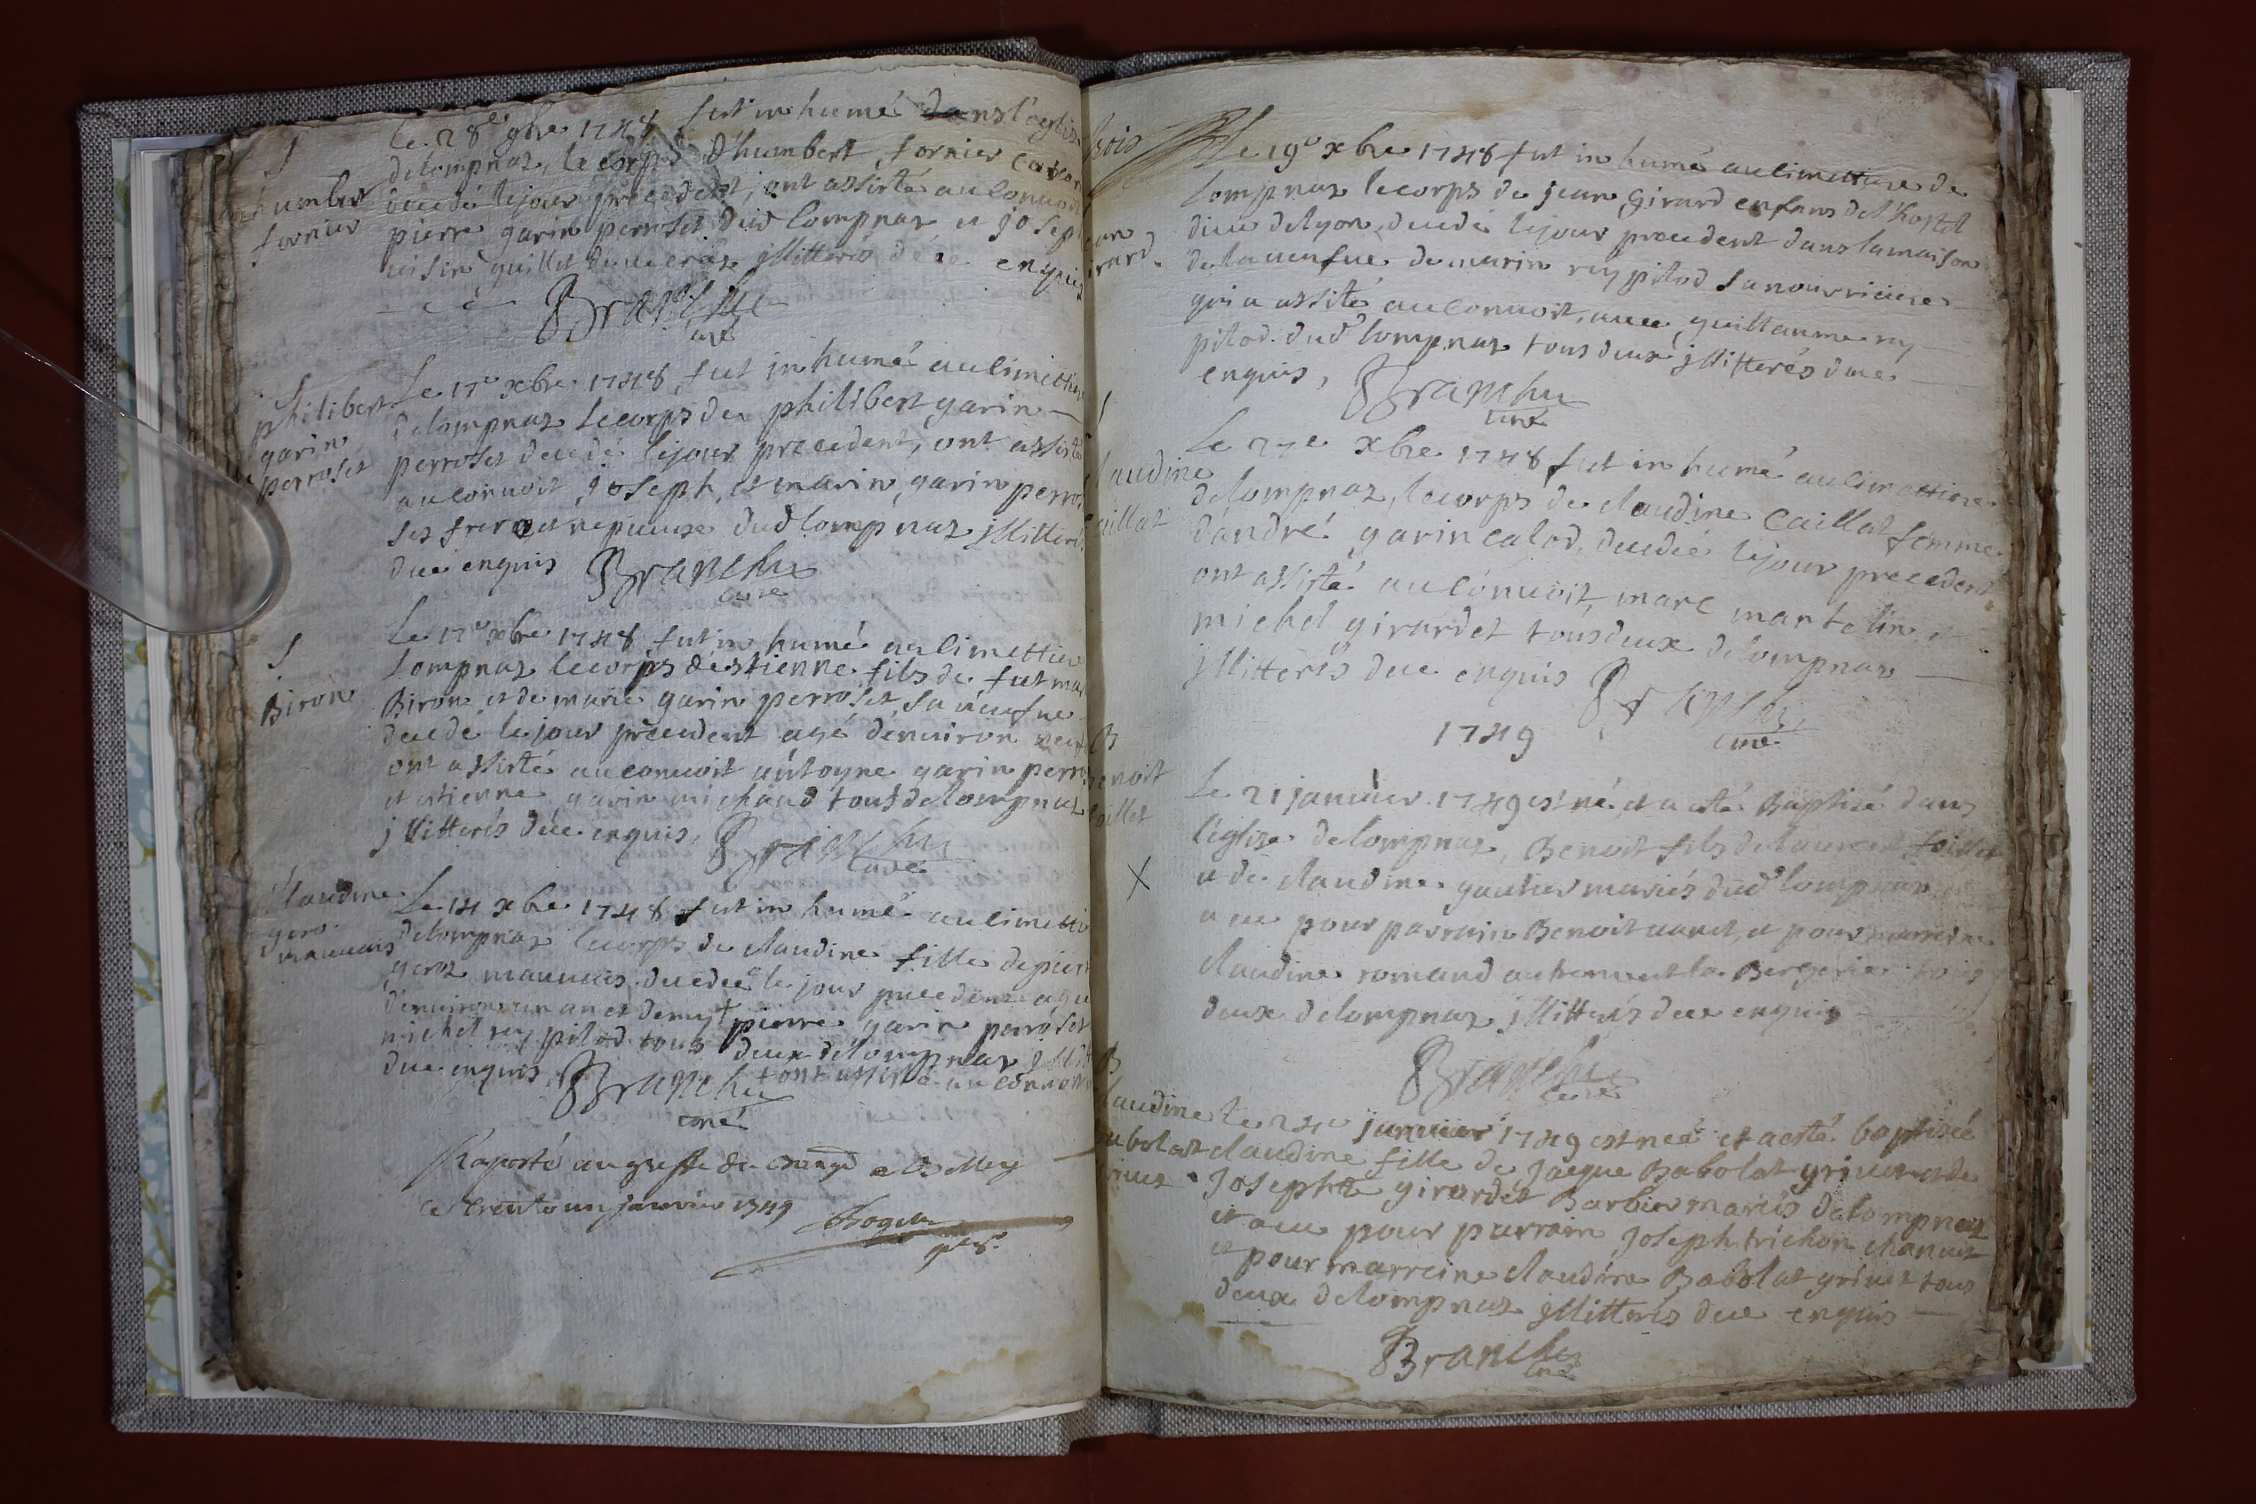 S
humbert
fornier
le 28e 9bre 1748 fut in humé dans l'eglise
delompnaz, le corps d'humbert fornier
decedé lejour precedent, ont assisté au convoit
pierre garin perroset dud lompnaz et joseph
guillet illitterés de ce enquis
Branche
curé
philibert
garin
perroset
Le 17e xbre 1748 fut in humé aucimettiere
delompnaz lecorps de philibert garin
perroset decedé lejour precedent, ont assisté
auconvoit joseph, et marin garin perroset
ses frere et nepueux dud lompnaz illitterés
dece enquis Branche
curé
S
Biron
Le 17e xbre 1748 fut in humé aucimettiere
Lompnaz lecorps d'estienne fils de fut
Biron et de marie garin perroset, sa veufue
decedé lejour precedent agé d'enuiron
ont assisté auconvoit antoyne garin perroset
et estienne garin michaud tous delompnaz
illitterés dece enquis, Branche
curé
Claudine
gero
mauuais
Le 14 xbre 1748 fut in humé aucimettiere
delompnaz lecorps de claudine fille de pierre
geroz mauuais decedée le jour precedent agée
d'enuiron un an et demy + pierre garin perroset
michel rey pilod tous deux delompnaz illitterés
dece enquis, + ont assisté au convoit
Branche
curé
Raporté au greffe de
ce trente un janvier 1749
Bois
jean
girard
Le 19e xbre 1748 fut in humé aucimettiere de
Lompnaz lecorps de jean girard enfans del'hostel
dieu delyon, decedé lejour precedent dans lamaison
delaveufue de marin rey pilod sa nourriciere
qui a assité auconvoit, avec guillaume rey
pilod dud lompnaz tous deux illitterés dece
enquis, Branche
curé
claudine
caillat
Le 27e xbre 1748 fut in humé aucimettiere
delompnaz, lecorps de claudine caillat femme
d'andré garin calod, decedée lejour precedent
ont assisté auconvoit, marc martelin et
michel girardet tous deux delompnaz
illitterés dece enquis Branche
curé
1749
B
Benoit
foillet
X
Le 21 janvier 1749 est né et a esté Baptisé dans
l'eglize delompnaz, Benoit fils de laurent foillet
et de claudine gautier mariés dud lompnaz
a eu pour parrain Benoit et pour marreine
claudine romand autrement la Bergerie tous
deux delompnaz illitterés dece enquis
Branche
curé
B
claudine
babolat
grivet
Le 24e janvier 1749 est neé et a esté baptisée
claudine fille de Jacque Babolat grivet et de
Josephte girardet Barbier mariés delompnaz
et a eu pour parrain Joseph trichon
et pour marreine claudine Babolat grivet tous
deux delompnaz illitterés dece enquis
Branche
curé